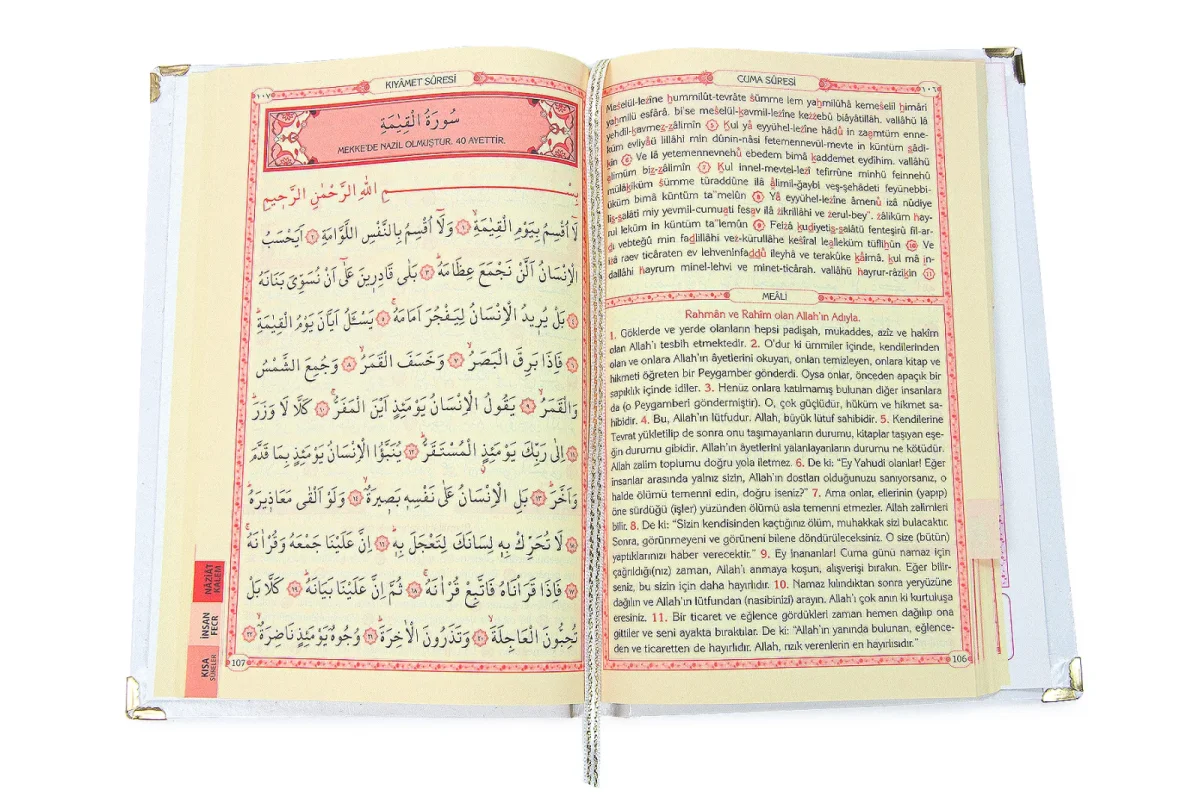 CUMA SÛRESİ
١٠٦
Meŝelül-lezîne ḥummilût-tevrâte ŝümme lem yaḥmilûhâ kemeŝelil ḥimâri
yaḥmilü esfârâ. bi'se meŝelül-kavmil-lezîne keẑẑebû biâyâtillâh. vallâhü lâ
yehdil-ḳavmeẓ-ẓâlimîn 5 Ḳul yâ eyyühel-lezîne hâdû in zaamtüm enne-
küm evliyâü lillâhi min dûnin-nâsi fetemennevül-mevte in küntüm sâdi-
kîn 6 Ve lâ yetemennevnehû ebedem bimâ kaddemet eydîhim. vallâhü
alîmüm biẓ-ẓâlimîn 7 Ḳul innel-mevtel-lezî tefirrûne minhü feinnehû
mülâkîküm ŝümme türaddûne ilâ âlimil-ğaybi veş-şehâdeti feyünebbi-
üküm bimâ küntüm ta"melûn 8 Yâ eyyühel-lezîne âmenû izâ nûdiye
liṣ-ṣalâti miy yevmil-cumuati fesav ilâ zikrillâhi ve zerul-bey". zâliküm hay-
rul leküm in küntüm ta"lemûn 9 Feizâ kudiyetiṣ-ṣalâtü fenteşirû fil-ar-
di vebteğû min fadlillâhi vez-kürullahe keŝîral lealleküm tüflihûn 10 Ve
izâ raev ticâraten ev lehveninfaddû ileyhâ ve terakûke kâimâ. kul mâ in-
dallâhi hayrum minel-lehvi ve minet-ticârah. vallâhü hayrur-râzikîn 11
MEÂLİ
Rahmân ve Rahîm olan Allah'ın Adıyla.
1. Göklerde ve yerde olanların hepsi padişah, mukaddes, azîz ve hakîm
olan Allah'ı tesbih etmektedir. 2. O'dur ki ümmiler içinde, kendilerinden
olan ve onlara Allah'ın âyetlerini okuyan, onları temizleyen, onlara kitap ve
hikmeti öğreten bir Peygamber gönderdi. Oysa onlar, önceden apaçık bir
sapıklık içinde idiler. 3. Henüz onlara katılmamış bulunan diğer insanlara
da (o Peygamberi göndermiştir). O, çok güçlüdür, hüküm ve hikmet sa-
hibidir. 4. Bu, Allah'ın lütfudur. Allah, büyük lütuf sahibidir. 5. Kendilerine
Tevrat yükletilip de sonra onu taşımayanların durumu, kitaplar taşıyan eşe-
ğin durumu gibidir. Allah'ın âyetlerini yalanlayanların durumu ne kötüdür.
Allah zalim toplumu doğru yola iletmez. 6. De ki: "Ey Yahudi olanlar! Eğer
insanlar arasında yalnız sizin, Allah'ın dostları olduğunuzu sanıyorsanız, o
halde ölümü temenni edin, doğru iseniz?" 7. Ama onlar, ellerinin (yapıp)
öne sürdüğü (işler) yüzünden ölümü asla temenni etmezler. Allah zalimleri
bilir. 8. De ki: "Sizin kendisinden kaçtığınız ölüm, muhakkak sizi bulacaktır.
Sonra, görünmeyeni ve görüneni bilene döndürüleceksiniz. O size (bütün)
yaptıklarınızı haber verecektir." 9. Ey inananlar! Cuma günü namaz için
çağrıldığı(nız) zaman, Allah'ı anmaya koşun, alışverişi bırakın. Eğer bilir-
seniz, bu sizin için daha hayırlıdır. 10. Namaz kılındıktan sonra yeryüzüne
dağılın ve Allah'ın lütfundan (nasibinizi) arayın. Allah'ı çok anın ki kurtuluşa
eresiniz. 11. Bir ticaret ve eğlence gördükleri zaman hemen dağılıp ona
gittiler ve seni ayakta bıraktılar. De ki: "Allah'ın yanında bulunan, eğlence-
den ve ticaretten de hayırlıdır. Allah, rızık verenlerin en hayırlısıdır."
106
KIYÂMET SÛRESİ
١٠٧
سُورَةُ الْقِيٰمَةِ
MEKKE'DE NAZİL OLMUŞTUR. 40 AYETTİR.
بِسْـــــمِ اللّٰهِ الرَّحْمٰنِ الرَّح۪يمِ
لَٓا اُقْسِمُ بِيَوْمِ الْقِيٰمَةِۙ ﴿١﴾ وَلَٓا اُقْسِمُ بِالنَّفْسِ اللَّوَّامَةِ ﴿٢﴾ اَيَحْسَبُ
الْاِنْسَانُ اَلَّنْ نَجْمَعَ عِظَامَهُۜ ﴿٣﴾ بَلٰى قَادِر۪ينَ عَلٰٓى اَنْ نُسَوِّيَ بَنَانَهُ
﴿٤﴾ بَلْ يُر۪يدُ الْاِنْسَانُ لِيَفْجُرَ اَمَامَهُۚ ﴿٥﴾ يَسْـَٔلُ اَيَّانَ يَوْمُ الْقِيٰمَةِۜ
﴿٦﴾ فَاِذَا بَرِقَ الْبَصَرُۙ ﴿٧﴾ وَخَسَفَ الْقَمَرُۙ ﴿٨﴾ وَجُمِعَ الشَّمْسُ
وَالْقَمَرُۙ ﴿٩﴾ يَقُولُ الْاِنْسَانُ يَوْمَئِذٍ اَيْنَ الْمَفَرُّۚ ﴿١٠﴾ كَلَّا لَا وَزَرَۜ
﴿١١﴾ اِلٰى رَبِّكَ يَوْمَئِذٍۨ الْمُسْتَقَرُّۜ ﴿١٢﴾ يُنَبَّؤُا الْاِنْسَانُ يَوْمَئِذٍ بِمَا قَدَّمَ
وَاَخَّرَۜ ﴿١٣﴾ بَلِ الْاِنْسَانُ عَلٰى نَفْسِه۪ بَص۪يرَةٌۙ ﴿١٤﴾ وَلَوْ اَلْقٰى مَعَاذ۪يرَهُۜ
﴿١٥﴾ لَا تُحَرِّكْ بِه۪ لِسَانَكَ لِتَعْجَلَ بِه۪ۜ ﴿١٦﴾ اِنَّ عَلَيْنَا جَمْعَهُ وَقُرْاٰنَهُۚ
﴿١٧﴾ فَاِذَا قَرَأْنَاهُ فَاتَّبِعْ قُرْاٰنَهُۚ ﴿١٨﴾ ثُمَّ اِنَّ عَلَيْنَا بَيَانَهُۜ ﴿١٩﴾ كَلَّا بَلْ
تُحِبُّونَ الْعَاجِلَةَۙ ﴿٢٠﴾ وَتَذَرُونَ الْاٰخِرَةَۜ ﴿٢١﴾ وُجُوهٌ يَوْمَئِذٍ نَاضِرَةٌۙ ﴿٢٢﴾
107
NÂZİÂT
KALEM
İNSAN
FECR
KISA
SÛRELER